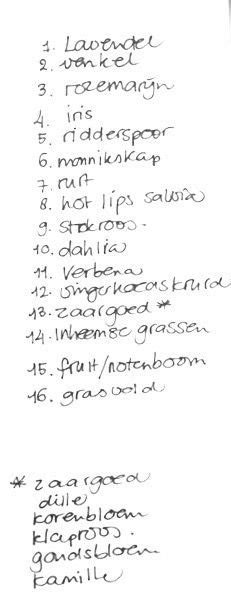 1. Lavendel
2. venkel
3. rozemarijn
4. iris
5. ridderspoor
6. monnikskap
7. ruit
8. hot lips salvia
9. stokroos.
10. dahlia
11. Verbena
12.
13. zaaigoed *
14. Inheemse grassen
15. fruit/notenboom
16. grasveld
* zaaigoed
dille
korenbloem
klaproos.
goudsbloem
kamille